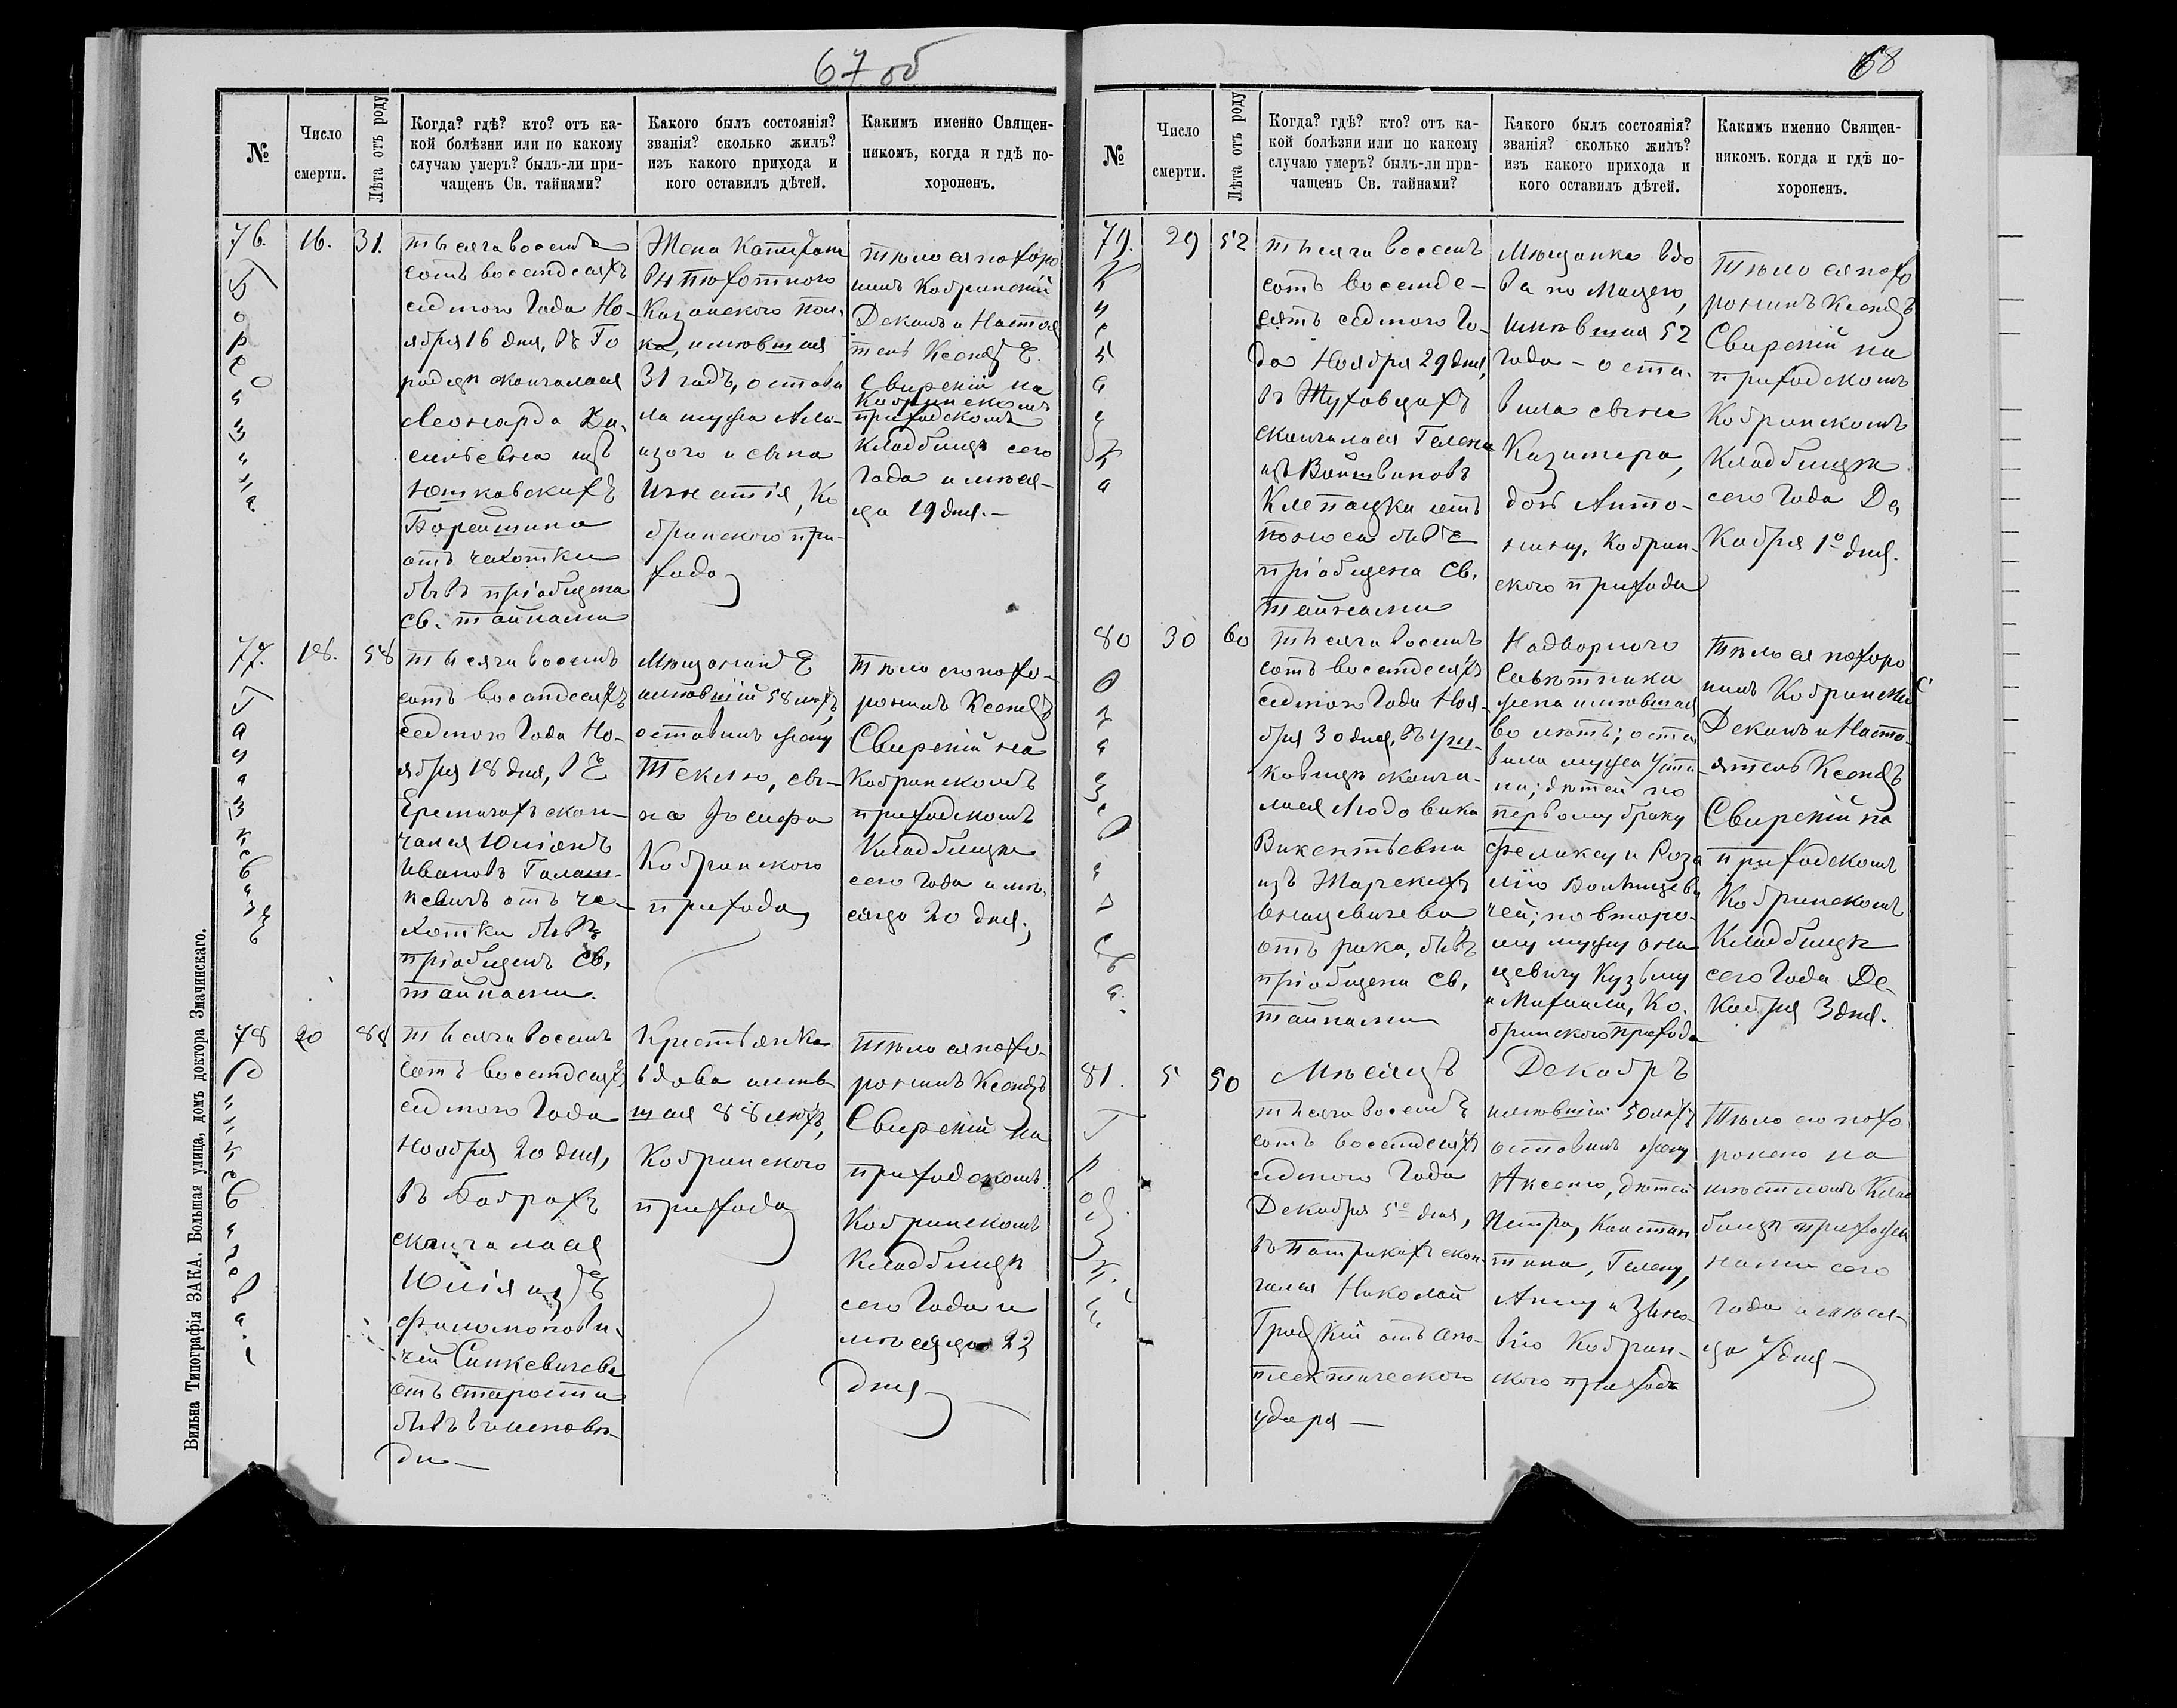 67 об
№
Число
смерти.
Лѣта отъ роду
Когда? гдѣ? кто? отъ ка-
кой болѣзни или по какому
случаю умеръ? былъ-ли при-
чащенъ Св. тайнами?
Какого былъ состоянія?
званія? сколько жилъ?
изъ какого прихода и
кого оставилъ дѣтей.
Какимъ именно Священ-
никомъ, когда и гдѣ по-
хороненъ.
76.
16.
31.
тысяча восемь
сотъ восемдесятъ
седмого Года Но-
ября 16 дня, въ Го
родцѣ скончалася
Леонарда
изъ
Юшковскихъ
Борейшина
отъ чахотки
бывъ пріобщена
св. тайнами
Жена Капитана
64 пѣхотного
Казанского пол-
ка, имѣвшая
31 годъ, остави
ла мужа Ало-
изого и сына
Игнатія, Ко
бринского при-
хода
тѣло ея похоро
нилъ Кобринскій
Деканъ и Настоя
тель Ксендзъ
Свирскій на
Кобринскомъ
приходскомъ
Кладбищѣ сего
Года и мѣся-
ца 19 дня.-
77.
18.
58
тысяча восемь
сотъ восемдесятъ
седмого Года Но-
ября 18 дня, въ
Еремичахъ скон-
чался Юліанъ
Ивановъ Галаш-
кевичъ отъ ча-
хотки бывъ
пріобщенъ Св.
тайнами.
Мѣщанинъ
имѣвшій 58 лѣтъ,
оставилъ жену
Теклю, сы-
на Іосифа
Кобринского
прихода
Тѣло его похо-
ронилъ Ксендзъ
Свирскій на
Кобринскомъ
приходскомъ
Кладбищѣ
сего Года и мѣ-
сяца 20 дня.
78
20
88
тысяча восемь
сотъ восемдесятъ
седмого Года
Ноября 20 дня,
въ Бобрахъ
скончалася
Юлія изъ
Филимонови-
чей Синкевичева
отъ старости
бывъ въ исповѣ-
ди-
Крестьянка
вдова имѣв
шая 88 лѣтъ,
Кобринского
прихода
Тѣло ея похо-
ронилъ Ксендзъ
Свирскій на
приходскомъ
Кобринскомъ
Кладбищѣ
сего Года и
мѣсяца 23
дня-
Вильна Типографія ЗАКА, Большая улица, домъ доктора Змачинскаго.
68
№
Число
смерти.
Лѣта отъ роду
Когда? гдѣ? кто? отъ ка-
кой болѣзни или по какому
случаю умеръ? былъ-ли при-
чащенъ Св. тайнами?
Какого былъ состоянія?
званія? сколько жилъ?
изъ какого прихода и
кого оставилъ дѣтей.
Какимъ именно Священ-
никомъ. когда и гдѣ по-
хороненъ.
79.
29
52
тысяча восемь
сотъ восемде-
сятъ седмого Го-
да Ноября 29 дня,
въ Жуховцахъ
скончалася Гелена
изъ Войтвиновъ
Клепацка отъ
поноса бывъ
пріобщена Св.
тайнами
Мѣщанка вдо
ва по
имѣвшая 52
года - оста-
вила сына
Казимера,
дочь Анто-
нину, Кобрин-
ского прихода
Тѣло ея похо
ронилъ Ксендзъ
Свирскій на
приходскомъ
Кобринскомъ
Кладбищѣ
сего Года Де
Кабря 1º дня.
80
30
60
тысяча восемь
сотъ восемдесятъ
седмого Года Ноя-
бря 30 дня, въ
сконча-
лася Людовика
Викентьевна
изъ Жарскихъ
Онацевичева
отъ рака, бывъ
пріобщена Св.
тайнами
Надворного
Совѣтника
жена имѣвшая
60 лѣтъ; оста
вила мужа Усти
на; дѣтей по
первому браку
Феликсу и Роза
лію
чей; по второ-
му мужу Она
цевичу Кузьму
и Михаила, Ко-
бринского прихода
Тѣло ея похоро
нилъ Кобринскій
Деканъ и Насто-
ятель Ксендзъ
Свирскій на
приходскомъ
Кобринскомъ
Кладбищѣ
сего Года Де-
Кабря 3 дня.
Мѣсяцъ Декабрь
81.
5
50
тысяча восемь
сотъ восемдесятъ
седмого Года
Декабря 5º дня,
въ Патрикахъ скон-
чался Николай
Гродзкій отъ апо-
плектического
удара-
имѣвшій 50 лѣтъ
оставилъ жену
Аксеню, дѣтей
Петра, Констан
тина, Гелену,
Анну и Зѣно-
вію Кобрин-
ского прихода
Тѣло его похо
ронено на
мѣстномъ Клад
бищѣ прихожа
нами сего
Года и мѣся-
ца 7 дня-